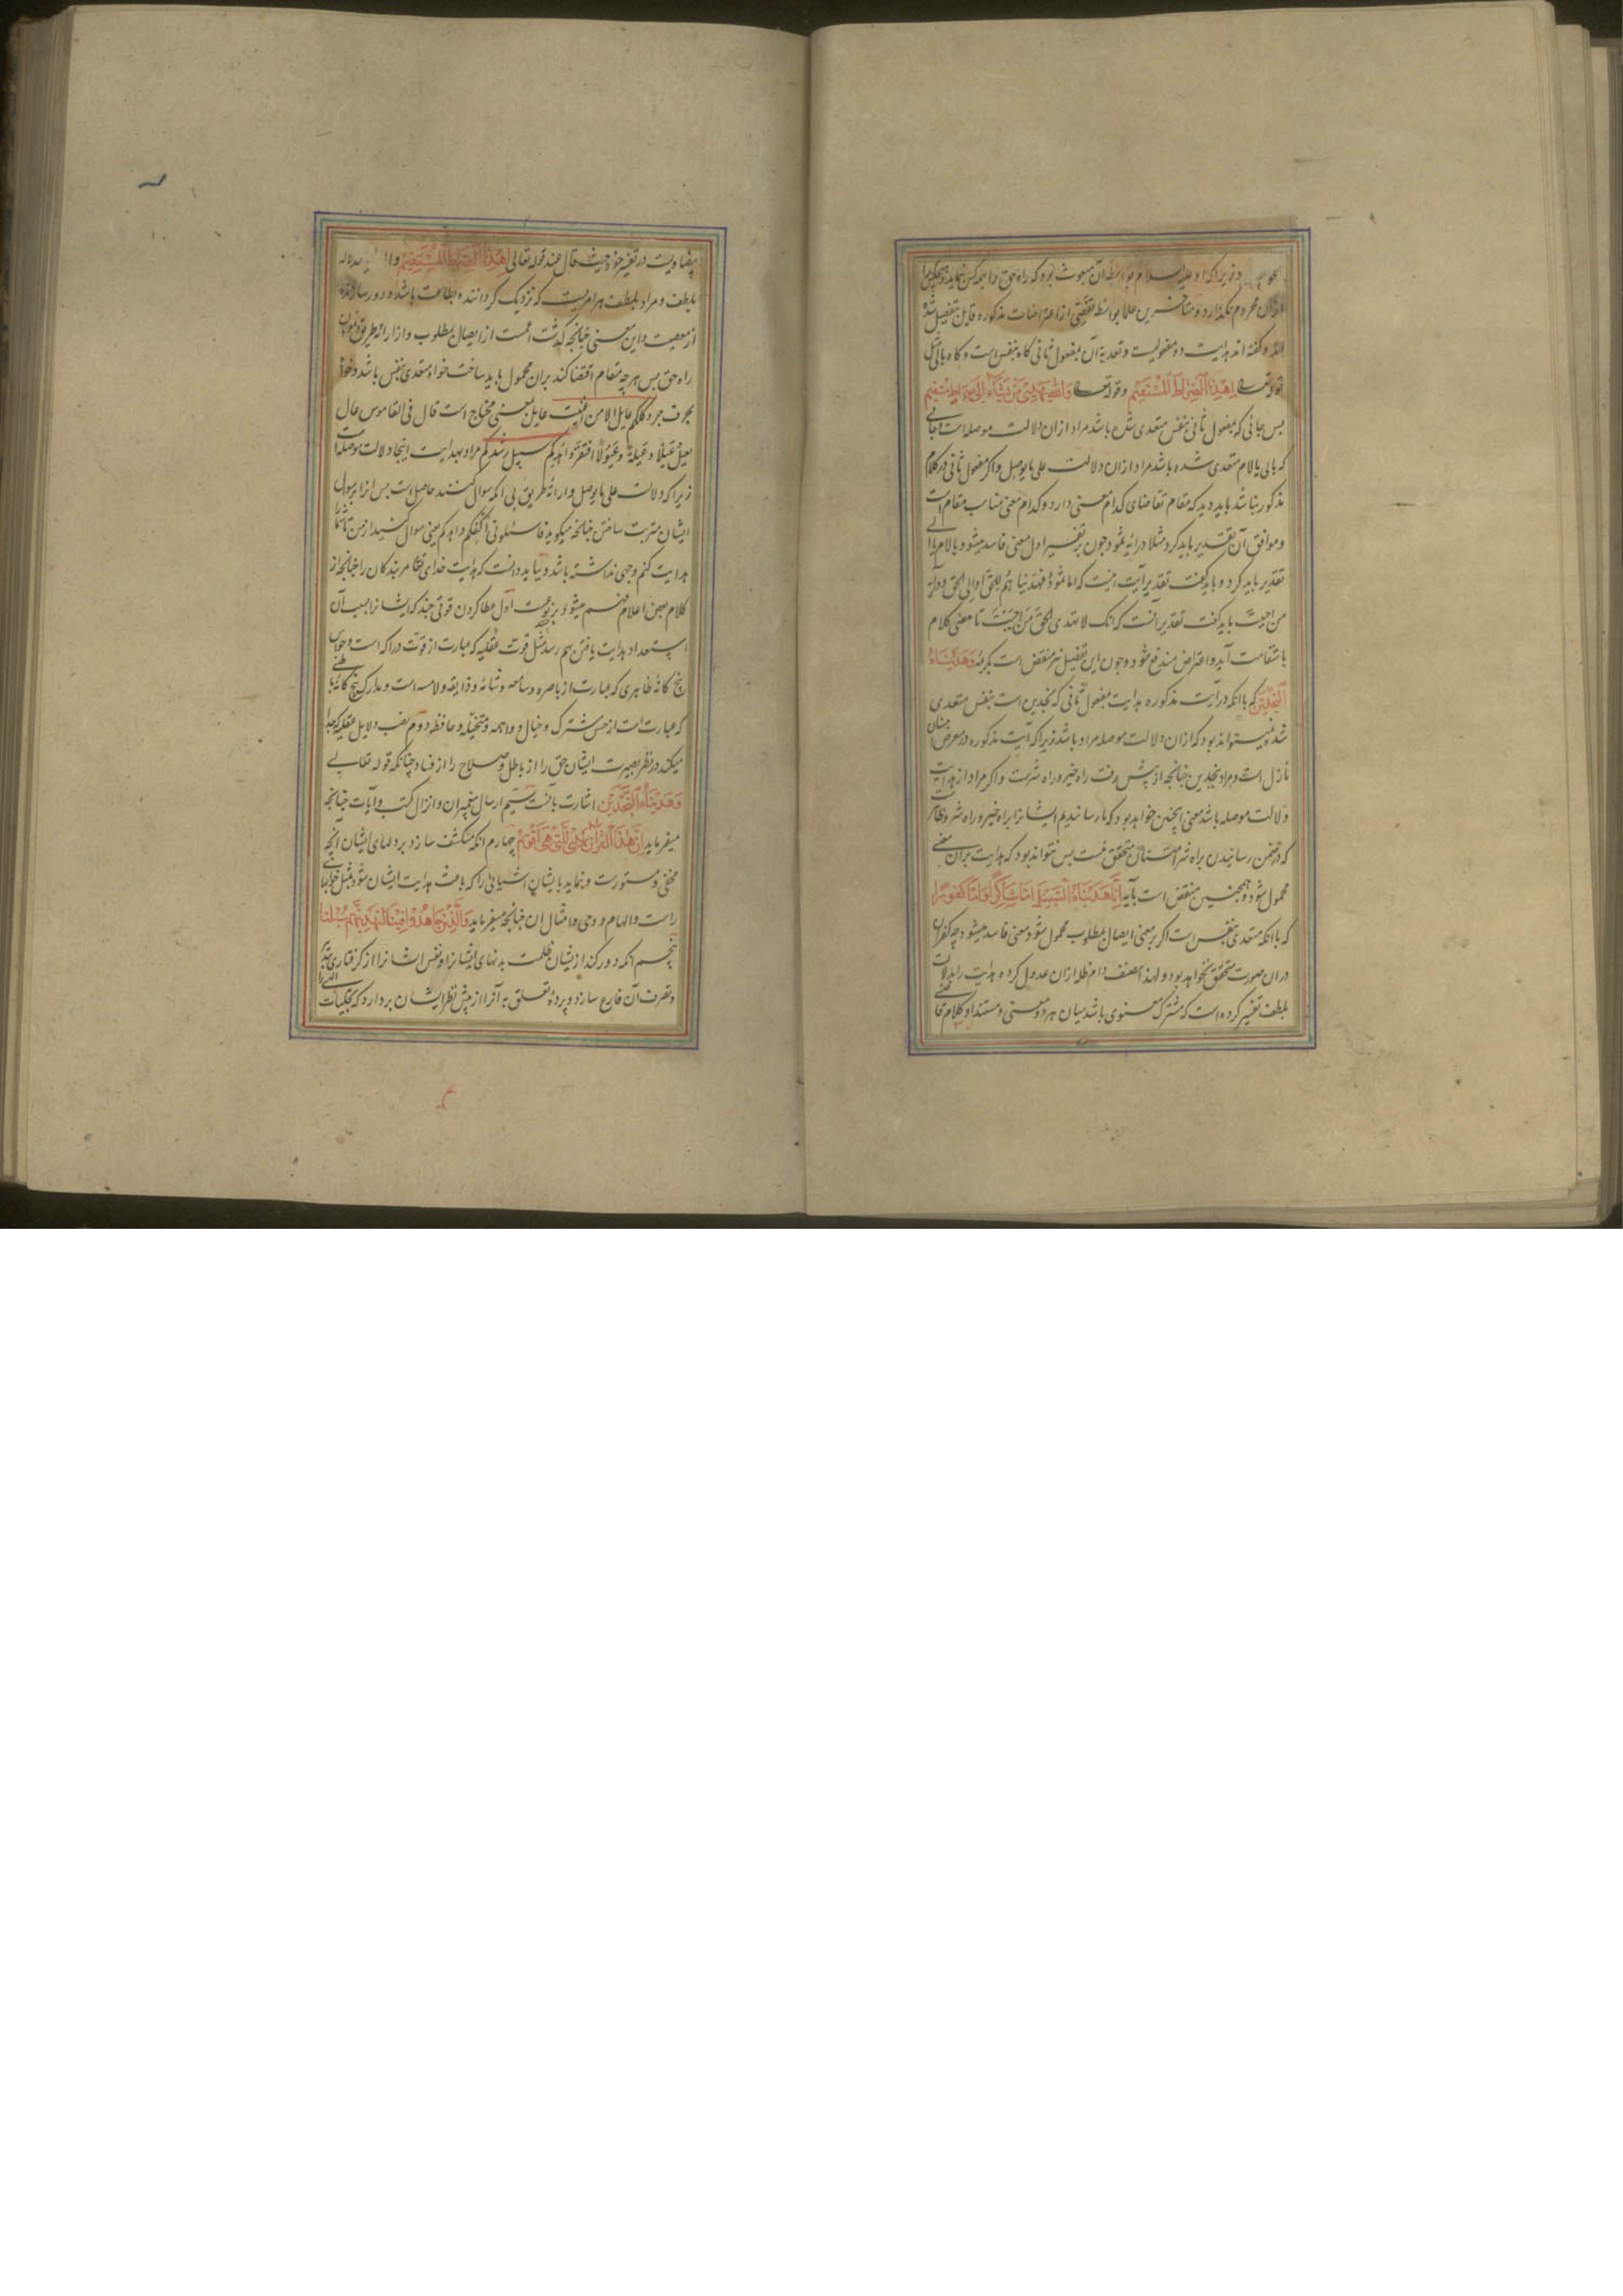 و زیرا که او علیه السلام بواسطه آن مبعوث بود که راه حق را بهمه کس نماید و هیچکس را
ازان محروم نگذارد و متأخرین علما بواسطه تفصی از اعتراضات مذکوره قایل بتفصیل شده
اند و گفته اند هدایت دو مفعولیست و تعدیه آن بمفعول ثانی گاه بنفس است و گاه بالی مثل
قوله تعالی اهدنا الصراط المستقیم و قوله تعالی والله یهدی من یشاء الی صراط مستقیم
پس جائی که مفعول ثانی بنفس متعدی شده باشد مراد ازان دلالت موصله است و جائی
که بالی یا لام متعدی شده باشد مراد ازان دلالت علی ما یوصل و اگر مفعول ثانی در کلام
مذکور نباشد باید دید که مقام تقاضای کدام معنی دارد و کدام معنی مناسب مقام است
و موافق آن تقدیر باید کرد مثلا در آیه ثمود چون بر تفسیر اول معنی فاسد میشود بالام یا الی
تقدیر باید کرد و باید گفت تقدیر آیت اینست که اما ثمود فهدیناهم للحق او الی الحق و در آیه
من احببت باید گفت تقدیر آنست که انک لا تهدی الحق من احببت تا معنی کلام
باستقامت آید و اعتراض مندفع شود و چون این تفصیل نیز منتقض است بکریمه وهدیناه
النجدین که با آنکه در آیت مذکوره هدایت بمفعول ثانی که نجدین است بنفس متعدی
شده نمیتواند بود که ازان دلالت موصله مراد باشد زیرا که آیت مذکوره در معرض امتنان
نازل است و مراد بنجدین چنانچه از پیش رفت راه خیر و راه شر است و اگر مراد از هدایت
دلالت موصله باشد معنی اینچنین خواهد بود که ما رسانیدیم ایشانرا براه خیر و راه شر و ظاهر است
که در ضمن رسانیدن براه شر امتنان متحقق نیست پس نتواند بود که هدایت بران معنی
محمول شود و همچنین منتقض است بآیه انا هدیناه السبیل اما شاکرا و اما کفورا
که با آنکه متعدی بنفس است اگر بر معنی ایصال بمطلوب محمول شود معنی فاسد میشود چه کفران
دران صورت متحقق نخواهد بود و لهذا مصنف دام ظله ازان عدول کرده هدایت را بدلالت
بلطف تفسیر کرده است که مشترک معنوی باشد میان هر دو معنی و مستند او کلام قاضی
بیضاویست در تفسیر خود حیث قال عند قوله تعالی اهدنا الصراط المستقیم دلاله
بلطف و مراد بلطف هر امریست که نزدیک گرداننده بطاعت باشد و دور سازنده
از معصیت و این معنی چنانچه گذشت اعم است از ایصال بمطلوب و از ارائه طریق و نمودن
راه حق پس هر چه مقام اقتضا کند بران محمول باید ساخت خواه متعدی بنفس باشد و خواه
بحرف جر و کلکم عایل الا من اغنیت عایل بمعنی محتاج است قال فی القاموس عال
یعیل عیلا و عیلة و عیولا افتقر و اهدکم سبیل رشدکم مراد بهدایت اینجا دلالت موصله است
زیرا که دلالت علی ما یوصل و ارائه طریق بی آنکه سوال کنند حاصل است پس انرا بر سوال
ایشان مترتب ساختن چنانچه میگوید فاسئلونی اکفکم و اهدکم یعنی سوال کنید از من تا شما را
هدایت کنم وجهی نداشته باشد و بباید دانست که هدایت خدای تعالی مر بندگان را چنانچه از
کلام بعضی اعلام فهم میشود بر پنج نوعست اول عطا کردن قوتی چند که ایشانرا بسبب آن
استعداد هدایت یافتن بهم رسد مثل قوت عقلیه که عبارت از قوت دراکه است و حواس
پنج گانه ظاهری که عبارت از باصره و سامعه و شامه و ذایقه و لامسه است و مدارک پنج گانه باطنی
که عبارت است از حس مشترک و خیال و واهمه و متخیله و حافظه دوم نصب دلایل عقلیه که جدا
میکند در نظر بصیرت ایشان حق را از باطل و صلاح را از فساد چنانکه قوله تعالی
وهدیناه النجدین اشارت بآنست سیم ارسال پیغمبران و انزال کتب و آیات چنانچه
میفرماید ان هذا القرآن یهدی للتی هی اقوم چهارم آنکه منکشف سازد بر دلهای ایشان آنچه
مخفی و مستورست و بنماید بایشان اشیائی را که باعث هدایت ایشان شود مثل خوابهای
راست و الهام و وحی و امثال ان چنانچه میفرماید والذین جاهدوا فینا لنهدینهم سبلنا
پنجم آنکه دور کند از یشان ظلمت بدنهای ایشانرا و نفس ایشانرا از گرفتاری تدبیر
و تصرف آن فارغ سازد و پرده تعلق به آنرا از پیش نظر ایشان بردارد که تجلیات الهی را